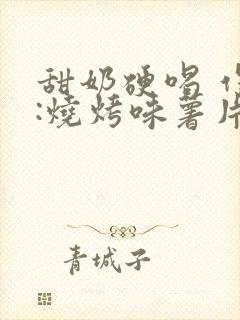 甜奶硬唱
:燒烤味薯片
青城子